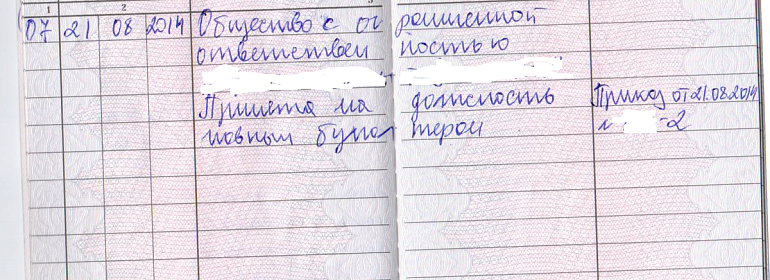 1 2
07 21 08 2014 Общество с ограниченной
ответственностью
Принята на должность Приказ от 21.08.2014
главным бухгалтером № -2